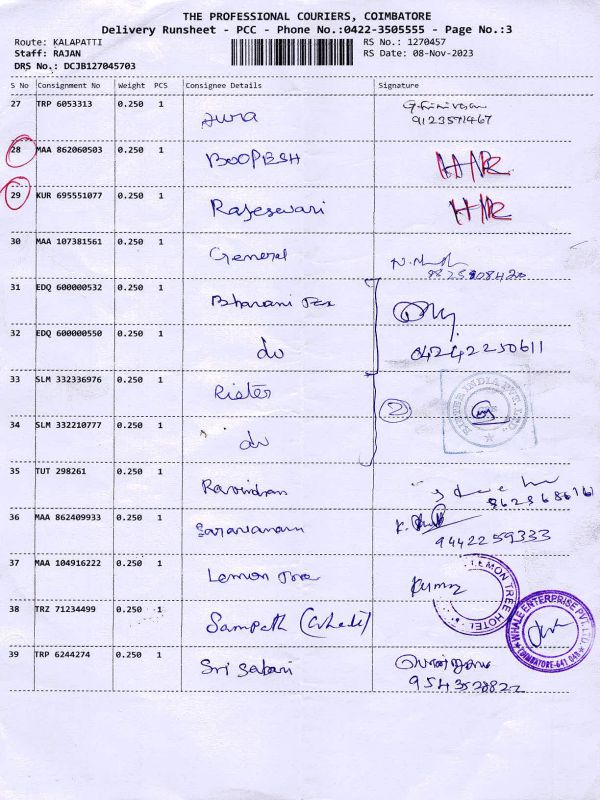 THE PROFESSIONAL COURIERS, COIMBATORE
Delivery Runsheet - PCC - Phone No.:0422-3505555 - Page No.:3
Route: KALAPATTI
RS No.: 1270457
Staff: RAJAN
RS Date: 08-Nov-2023
DRS No.: DCJB127045703
S No Consignment No Weight PCS Consignee Details Signature
27 TRP 6053313 0.250 1
9123571467
28 MAA 862060503 0.250 1 BOOPESH
29 KUR 695551077 0.250 1 Rajeswari
30 MAA 107381561 0.250 1 General
31 EDQ 600000532 0.250 1 Bharani Tex
32 EDQ 600000550 0.250 1 do 04242250611
33 SLM 332336976 0.250 1 Rieter
2
RIETER INDIA PVT. LTD.
34 SLM 332210777 0.250 1 do
35 TUT 298261 0.250 1 Ravindran
36 MAA 862409933 0.250 1 Saravanan
9442259333
37 MAA 104916222 0.250 1 Lemon Tree Kumar
LEMON TREE HOTEL
38 TRZ 71234499 0.250 1 Sampath
WHALE ENTERPRISE PVT. LTD.
COIMBATORE-641 048
39 TRP 6244274 0.250 1 Sri Sabari